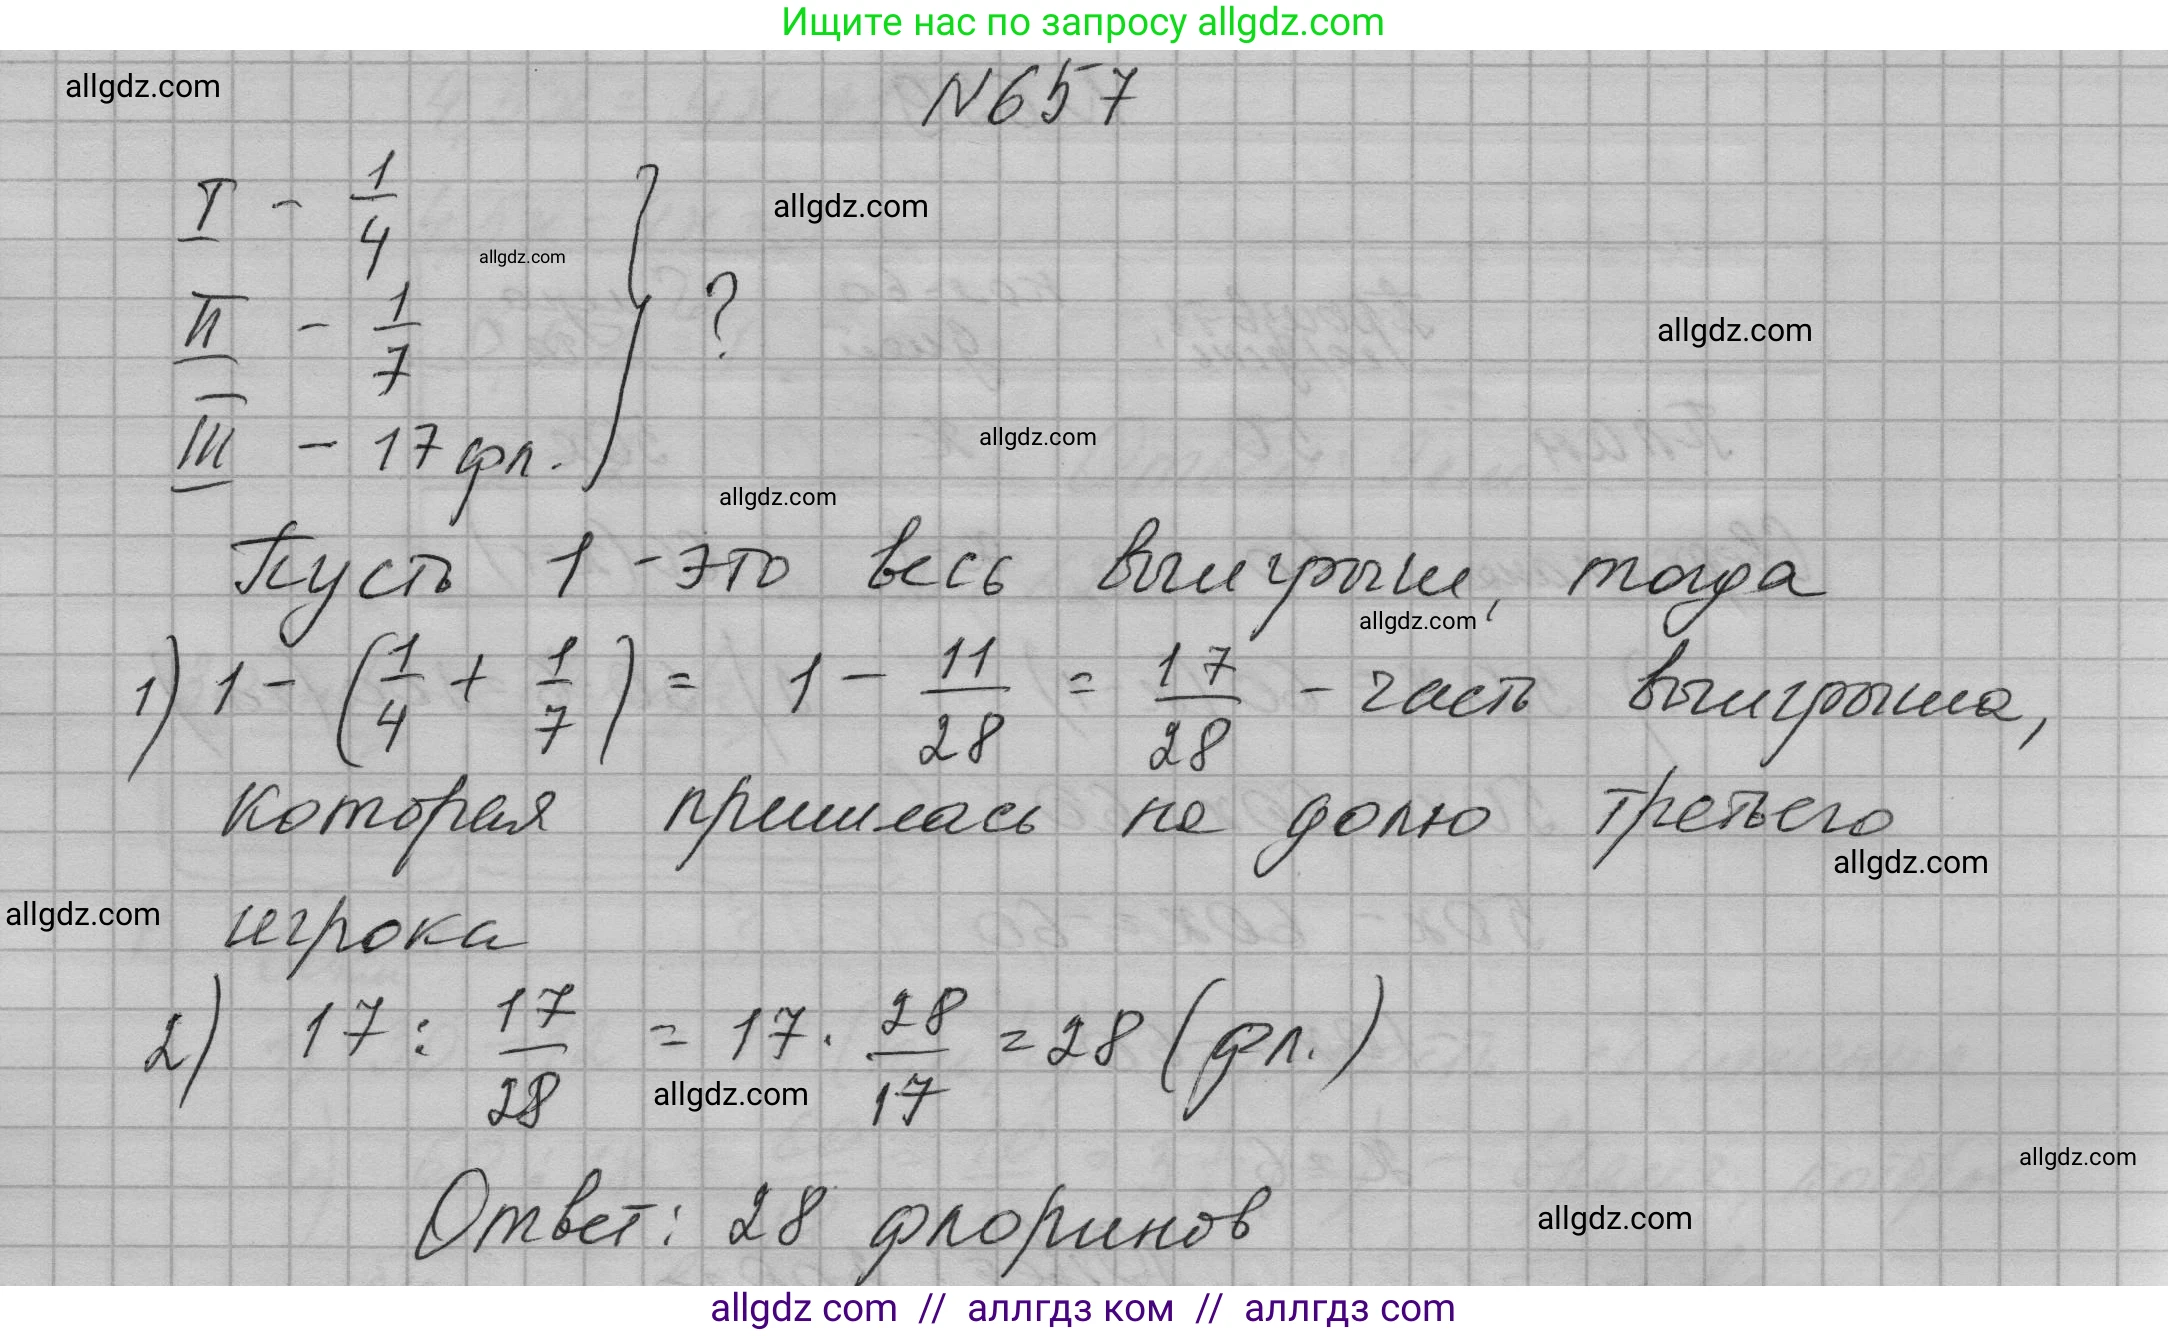 Ищите нас по запросу allgdz.com
allgdz.com
N657
I - 1/4
allgdz.com
allgdz.com
II - 1/7
?
allgdz.com
III - 17 фл.
allgdz.com
allgdz.com
Пусть 1 - это весь выигрыш, тогда
allgdz.com
1) 1 - (1/4 + 1/7) = 1 - 11/28 = 17/28 - часть выигрыша,
которая пришлась на долю третьего
allgdz.com
allgdz.com
игрока
2) 17 : 17/28 = 17 · 28/17 = 28 (фл.)
allgdz.com
allgdz.com
Ответ: 28 флоринов
allgdz.com
allgdz com // аллгдз ком // аллгдз com